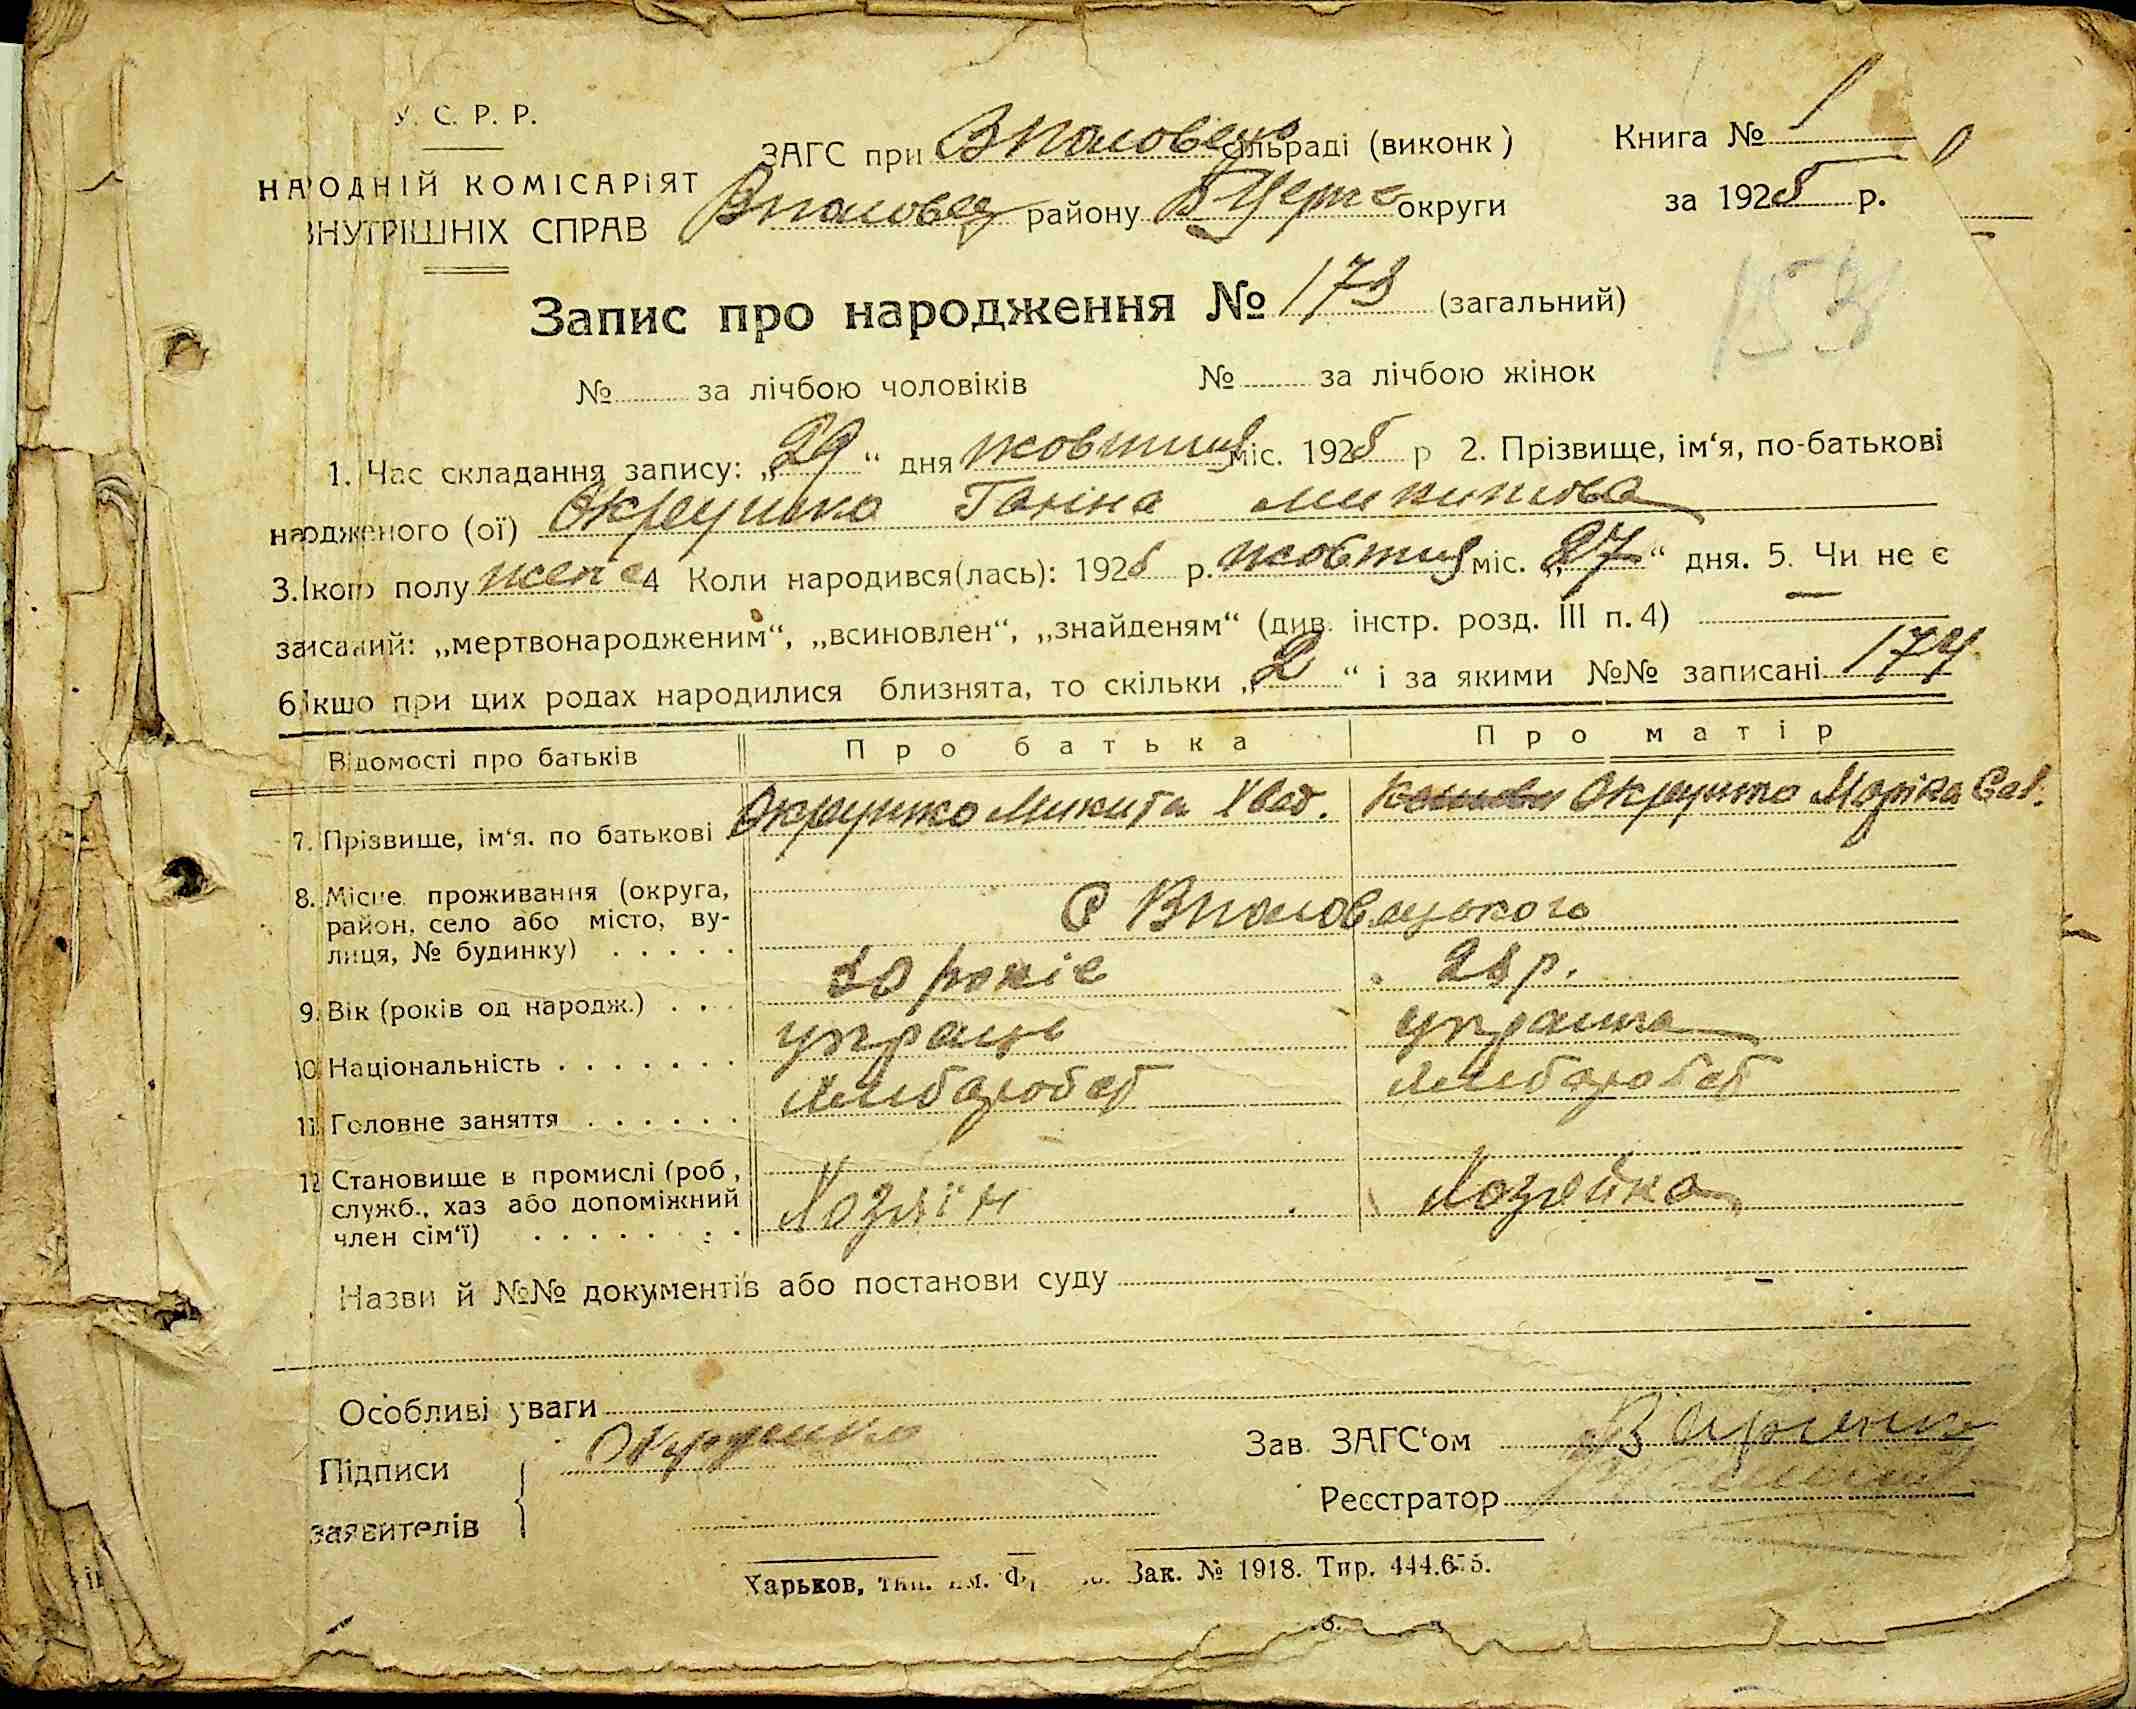 У. С. Р. Р.
НАРОДНІЙ КОМІСАРІЯТ
ВНУТРІШНІХ СПРАВ
ЗАГС при Вполовец сільраді (виконк)
Вполовец району Б Церк округи
Книга № 1
за 1925 р.
Запис про народження № 173 (загальний)
153
№ за лічбою чоловіків № за лічбою жінок
1. Час складання запису: „29“ дня жовтня міс. 1925 р 2. Прізвище, ім‘я, по-батькові
народженого (ої) Окрушко Ганна Микитова
3. Якого полу жено 4 Коли народився(лась): 1925 р. жовтня міс. „27“ дня. 5. Чи не є
записаний: „мертвонародженим“, „всиновлен“, „знайденям“ (див. інстр. розд. III п. 4) —
6. Якшо при цих родах народилися близнята, то скільки „2“ і за якими №№ записані 174
Відомості про батьків Про батька Про матір
7. Прізвище, ім‘я. по батькові Окрушко Микита Хвед. Окрушко Маріка Сав.
8. Місце проживання (округа,
район, село або місто, ву-
лиця, № будинку) . . . . . С Вполовецького
9. Вік (років од народж.) . . . 30 років 28 р.
10. Національність . . . . . . . українс українка
11. Головне заняття . . . . . . хлібароб хлібароб
12 Становище в промислі (роб,
служб., хаз або допоміжний
член сім‘ї) . . . . . . . . Хозяїн Хозяйка
Назви й №№ документів або постанови суду –
Особливі уваги
Підписи
заявителів
Окрушко
Зав. ЗАГС‘ом
Реєстратор
Харьков, тип. им. Зак. № 1918. Тир. 444.675.